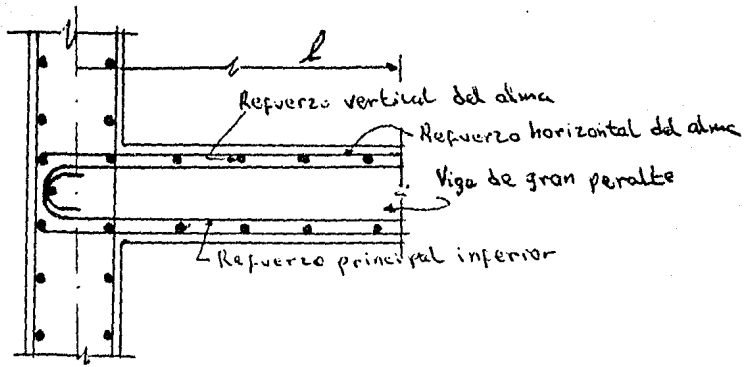 l
Refuerzo vertical del alma
Refuerzo horizontal del alma
Viga de gran peralte
Refuerzo principal inferior